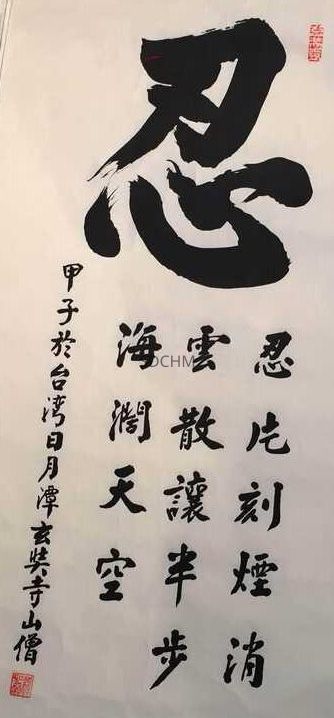 忍
忍片刻煙消
雲散讓半步
海濶天空
甲子於台湾日月潭玄奘寺山僧